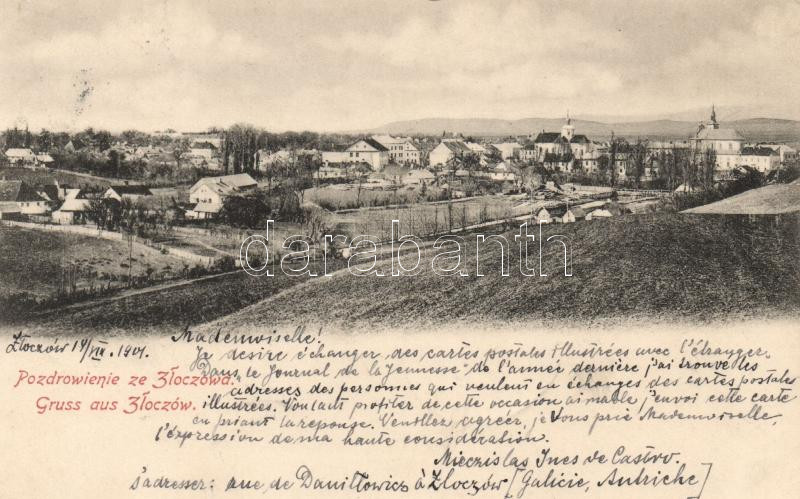 darabanth
Mademoiselle!
Złoczów 14/VII. 1901.
Je desire échanger des cartes postales illustrées avec l'étranger.
Dans le Journal de la Jeunesse de l'année derniere j'ai trouvé les
adresses des personnes qui veulent en échanges des cartes postales
Pozdrowienie ze Złoczowa.
illustrées. Voulant profiter de cette occasion aimable j'envoi cette carte
Gruss aus Złoczów.
en priant la reponse. Veuillez agréer, je Vous prie Mademoiselle,
l'expression de ma haute considération.
Mieczislas Ines de Castro.
s'adresser: rue de Daniłłowicz à Złoczów [Galicie, Autriche]